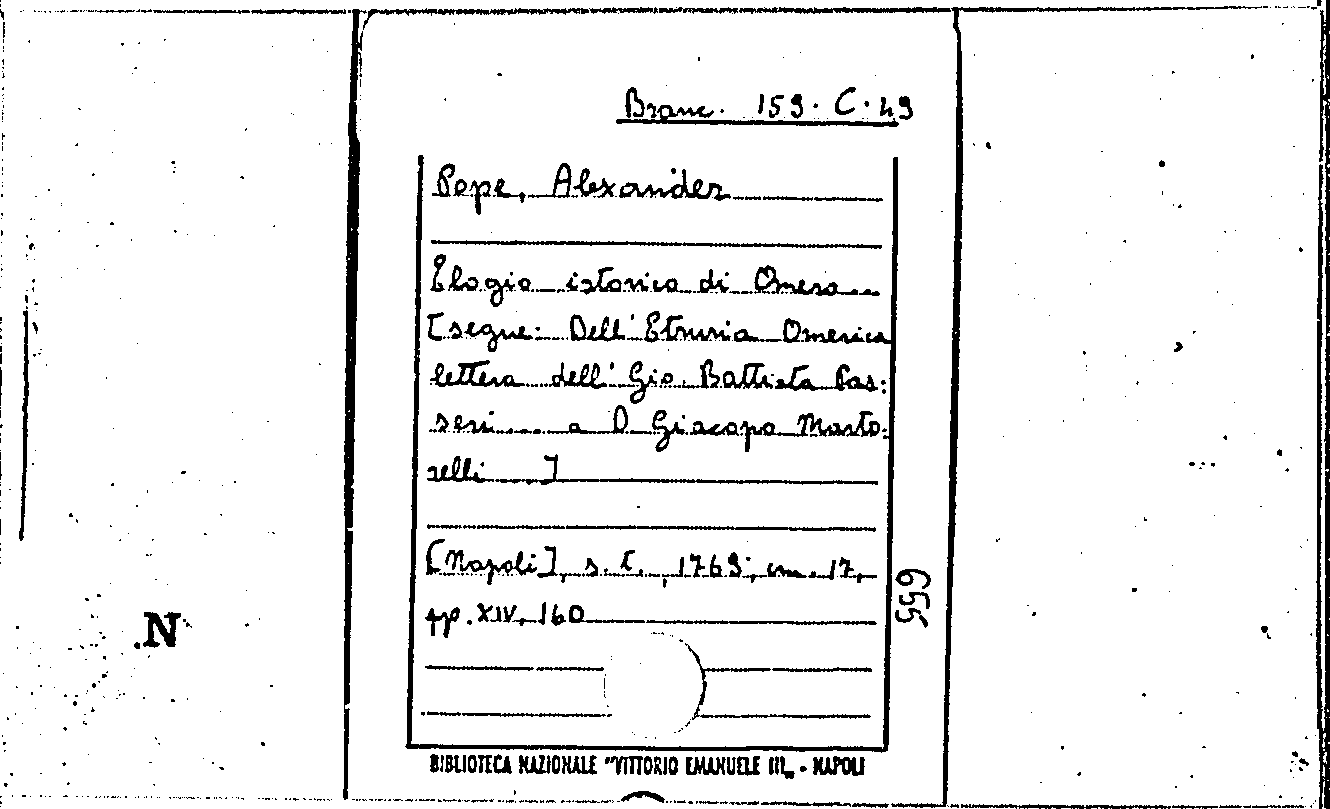 Branc. 159. C. 49
Pope, Alexander
Elogio istorico di Omero...
[segue: Dell' Etruria Omerica
lettera dell' Gio. Battista Pas=
seri.... a D Giacopo Marto=
relli....]
[Napoli], s. t., 1769, cm. 17,
pp. XIV, 160
655
N
BIBLIOTECA NAZIONALE "VITTORIO EMANUELE III„ - NAPOLI